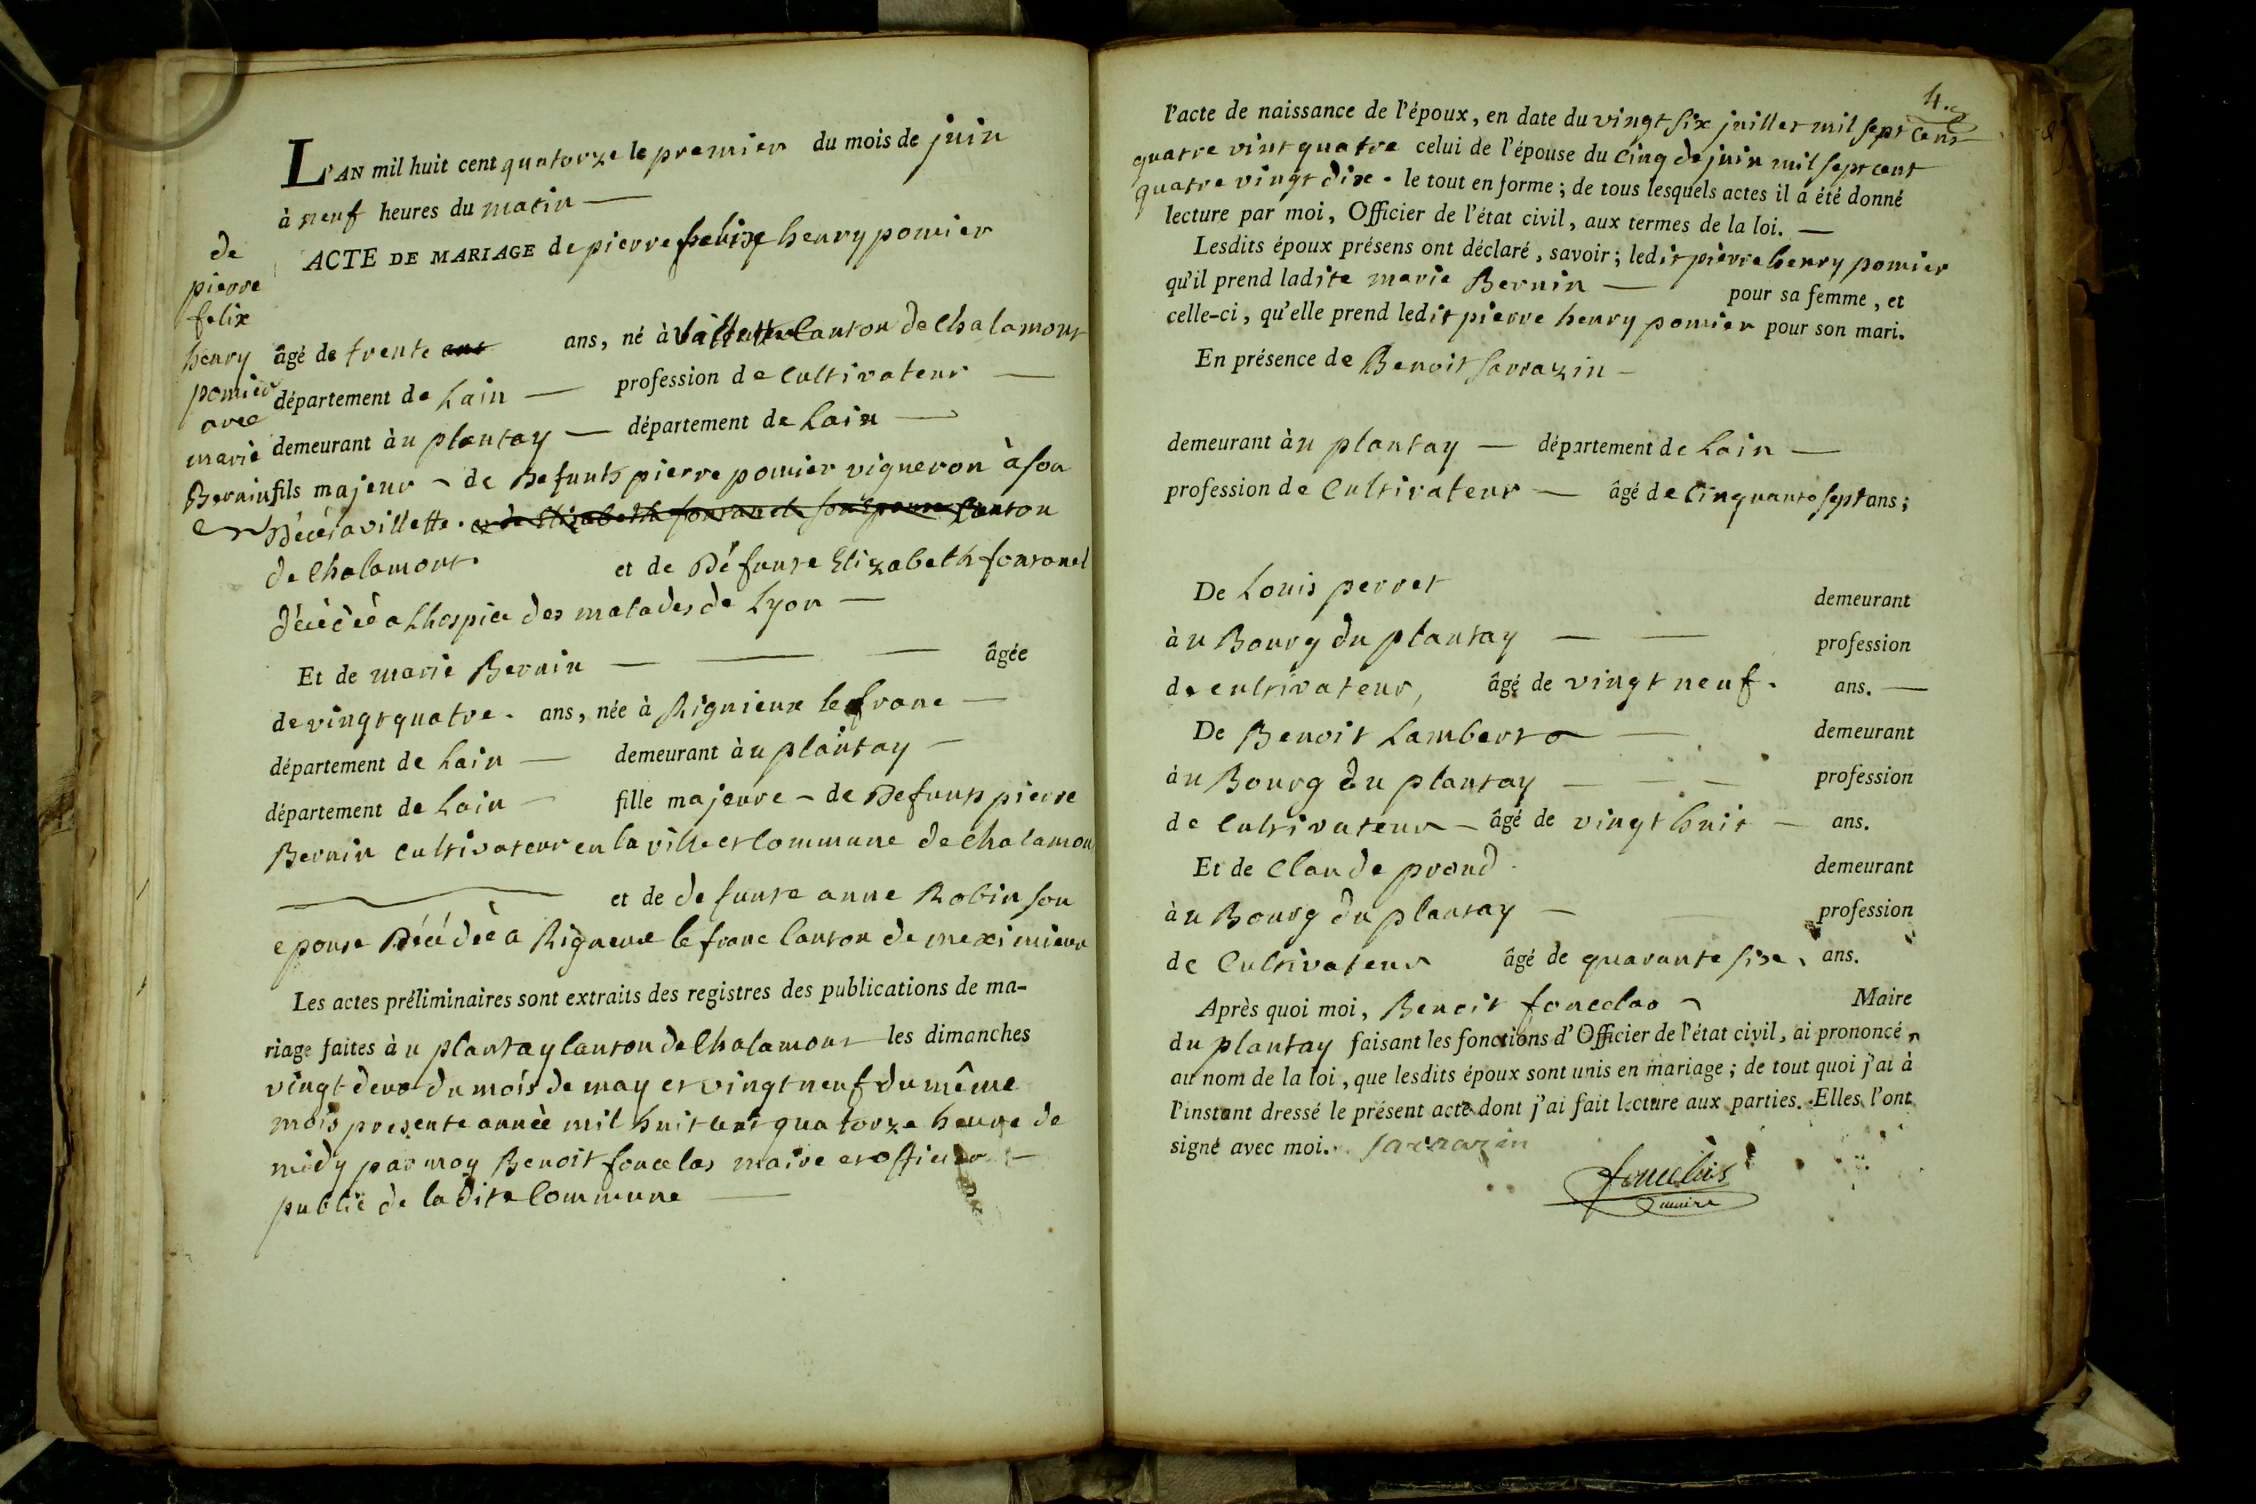 L'AN mil huit cent quatorze le premier du mois de juin
à neuf heures du matin —
ACTE DE MARIAGE de pierre felix henry pomier
de
pierre
felix
henry
pomier
avec
marie
Bernin
âgé de trente ans ans, né à Villette Canton de Chalamont
département de Lain — profession de Cultivateur —
demeurant àu plantay — département de Lain —
fils majeur - de Defunts pierre pomier vigneron à son
Décés a villette. et de Elizabeth fontanel son epouse Canton
de Chalamont. et de Défunte Elizabeth fontanel
décédéé a Lhospice des malades de Lyon —
Et de marie Bernin — — — âgée
de vingt quatre. ans, née à Rignieux le franc —
département de Lain — demeurant àu plantay —
département de Lain — fille majeure - de Defunts pierre
Bernin cultivateur en la ville et Commune de Chalamon
— et de defunte anne Robin son
epouse Décédéé a Rigneux le franc Canton de meximieux
Les actes préliminaires sont extraits des registres des publications de ma-
riage faites àu plantay Canton de Chalamont les dimanches
vingt deux du mois de may et vingt neuf du même
mois presente année mil huit cent quatorze heure de
midy par moy Benoit fonclas maire et officier —
public de la dite Commune —
4.e
l'acte de naissance de l'époux, en date du vingt six juillet mil sept cent
quatre vint quatre celui de l'épouse du cinq de juin mil sept cent
quatre vingt dix. le tout en forme; de tous lesquels actes il a été donné
lecture par moi, Officier de l'état civil, aux termes de la loi. —
Lesdits époux présens ont déclaré, savoir; ledit pierre henry pomier
qu'il prend ladite marie Bernin — pour sa femme, et
celle-ci, qu'elle prend ledit pierre henry pomier pour son mari.
En présence de Benoit Sarrazin -
demeurant àu plantay — département de Lain —
profession de Cultivateur — âgé de Cinquante sept ans;
De Louis perret demeurant
àu Bourg du plantay — — profession
de cultivateur, âgé de vingt neuf. ans. —
De Benoit Lambert — demeurant
àu Bourg du plantay — — — profession
de Cultivateur - âgé de vingt huit — ans.
Et de Claude prond demeurant
àu Bourg du plantay — profession
de Cultivateur âgé de quarante six, ans.
Après quoi moi, Benoit fonclas Maire
du plantay faisant les fonctions d'Officier de l'état civil, ai prononcé,
au nom de la loi, que lesdits époux sont unis en mariage; de tout quoi j'ai à
l'instant dressé le présent acte dont j'ai fait lecture aux parties. Elles l'ont
signé avec moi. Sarrazin
maire